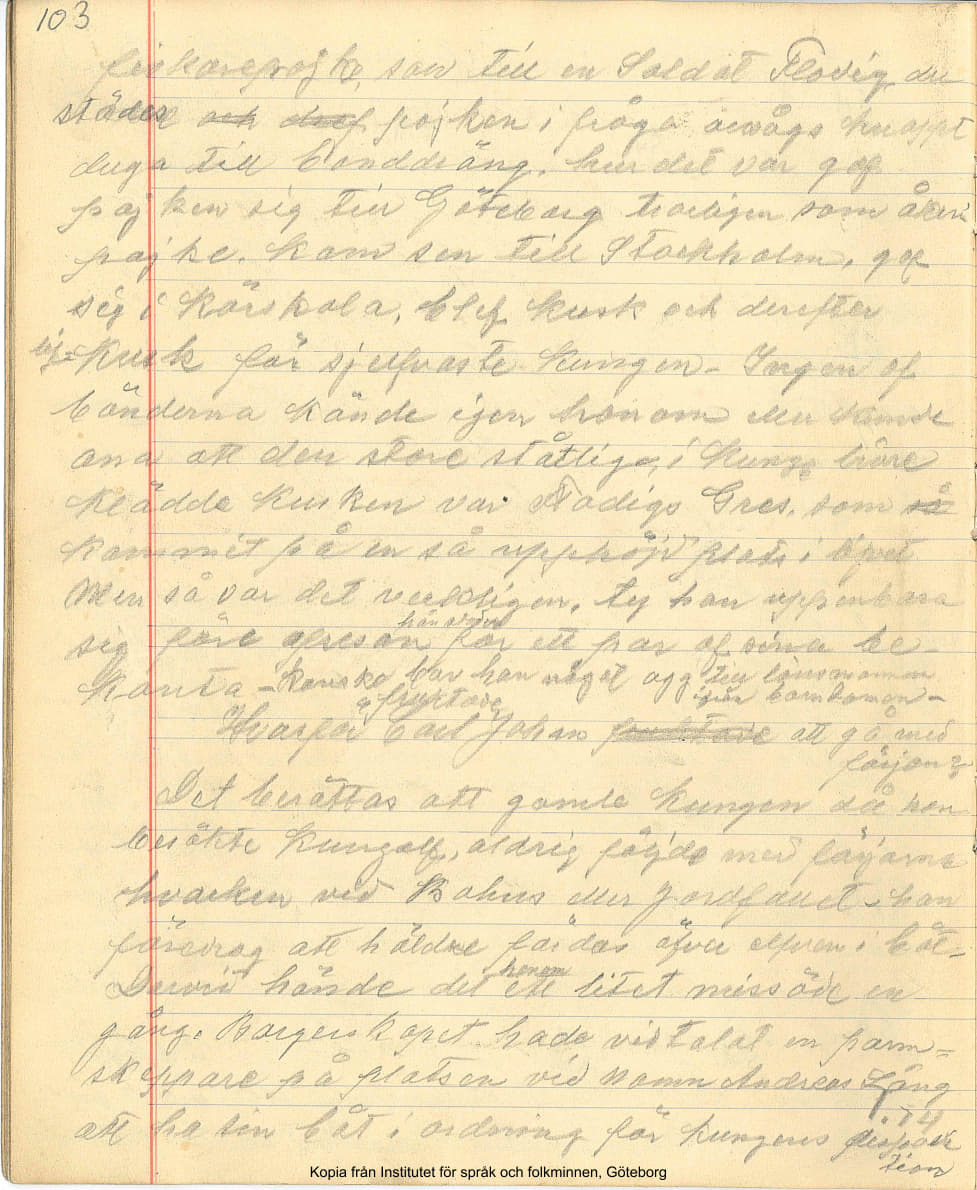 103
fiskarepojke, son till en Soldat Flodig du
städes och pojken i fråga ansågs knappt
duga till bonddräng, hur det var gaf
pojken sig till Göteborg troligen som åkeri
pojke. kom sen till Stockholm, gaf
sig i Körskola, blef kusk och derefter
lif-Kusk för sjelfvaste kungen - Ingen af
bönderna kände igen honom eller kunde
ana att den store ståtlige, i kungs livre
klädde kusken var Flodigs Gres. som så
kommit på en så upphöjd plats i lifvet
Men så var det verkligen, ty han uppenbara
sig före afresan för ett par af sina be-
kanta - Kanske bar han något agg till länsmannen
från barndomen -
Hvarför Carl Johan fruktade att gå med
färjan?
Det berättas att gamle kungen då han
besökte Kungelf, aldrig följde med färjorna
hvarken vid Bohus eller Jordfallet - han
föredrog att häldre färdas öfver elfven i båt -
Dervid hände det honom ett litet missöde en
gång. Borgerskapet hade vidtalat en pram-
skeppare på platsen vid namn Andreas Lång
att ha sin båt i ordning för kungens disposi
tion
Kopia från Institutet för språk och folkminnen, Göteborg